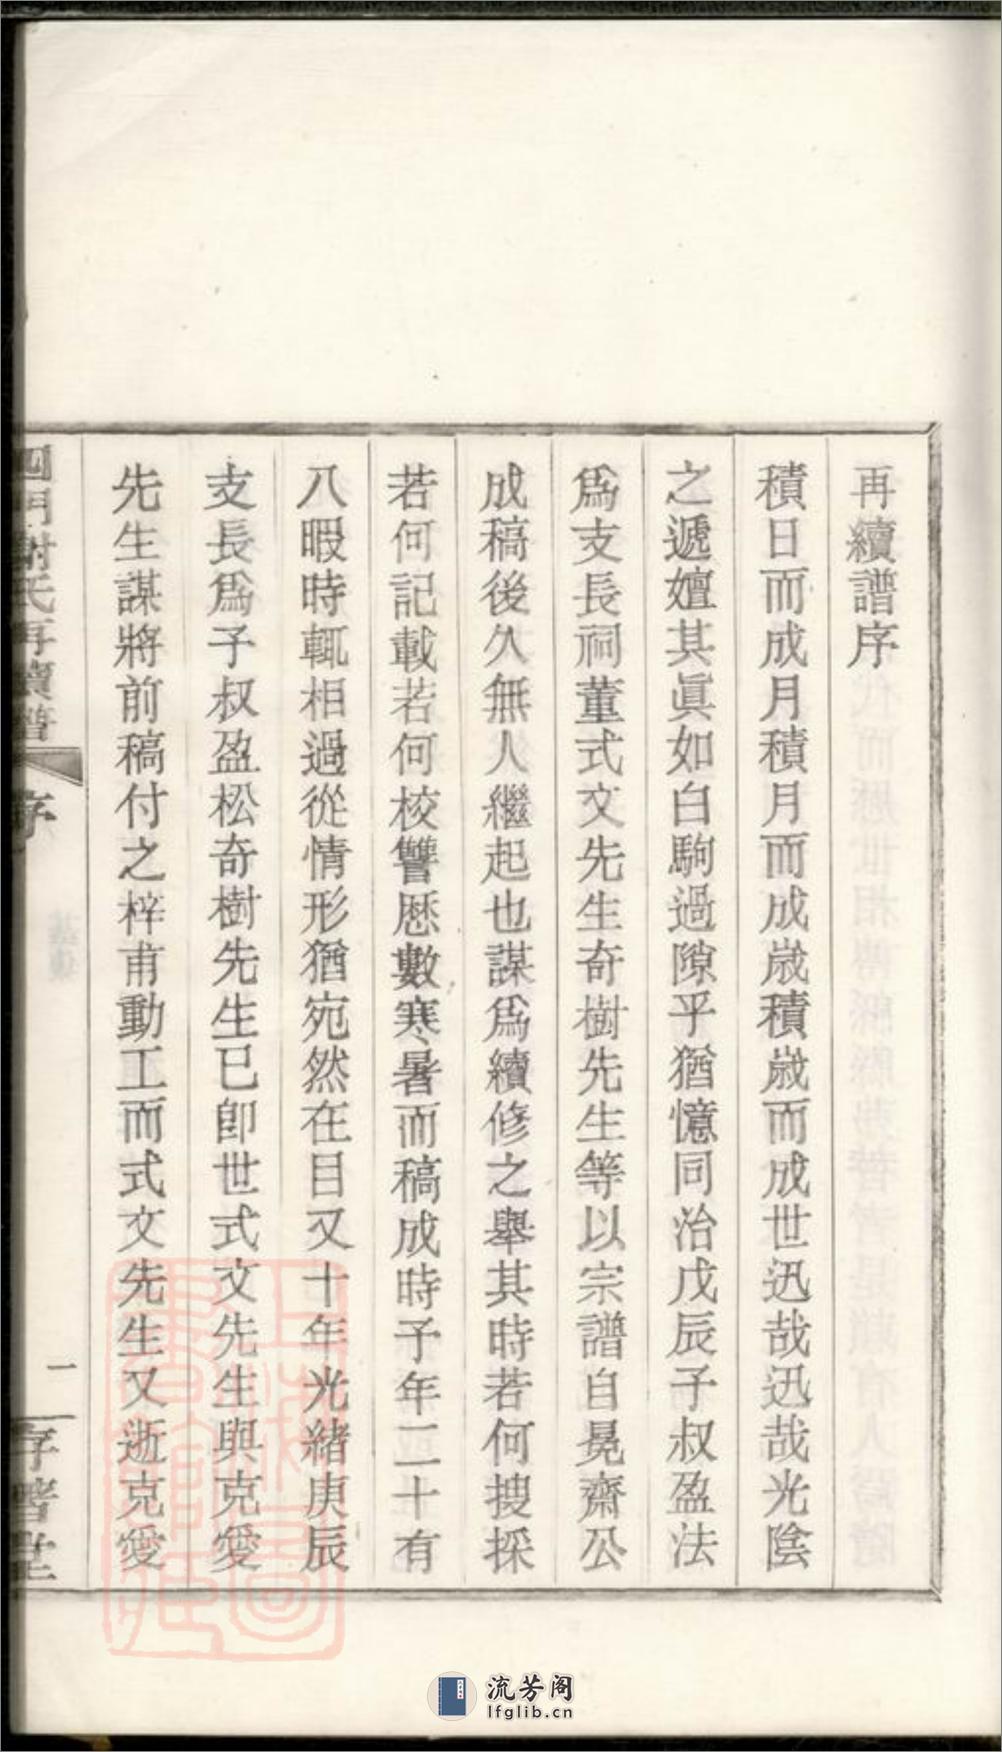 再續譜序
積日而成月積月而成歲積歲而成世迅哉迅哉光陰
之遞嬗其眞如白駒過隙乎猶憶同治戊辰子叔盈法
爲支長祠董式文先生奇樹先生等以宗譜自晃齋公
成稿後久無人繼起也謀爲續修之舉其時若何搜採
若何記載若何校讐歷數寒暑而稿成時予年二十有
八暇時輒相過從情形猶宛然在目又十年光緒庚辰
支長爲子叔盈松奇樹先生已卽世式文先生與克愛
先生謀將前稿付之梓甫動工而式文先生又逝克愛
四門謝氏再續譜
序
一
存耆堂
上海圖書館藏
流芳阁
lfglib.cn